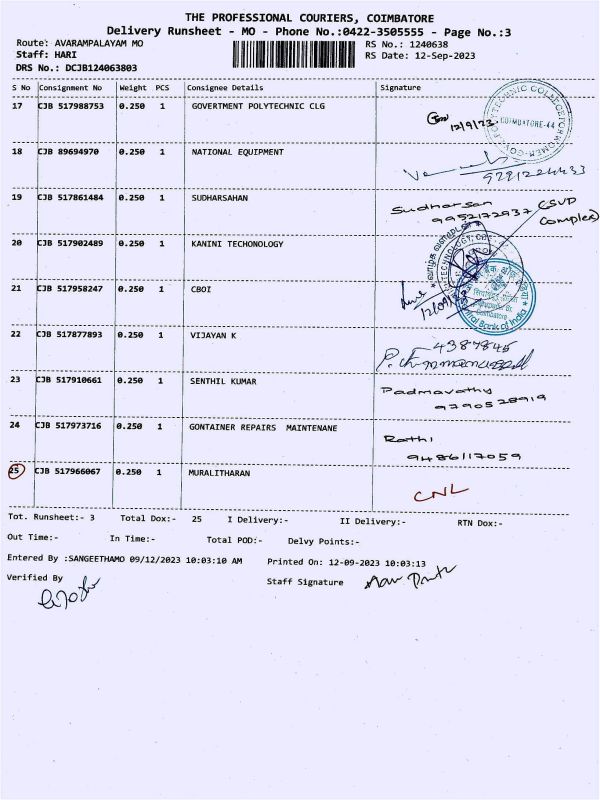 THE PROFESSIONAL COURIERS, COIMBATORE
Delivery Runsheet - MO - Phone No.:0422-3505555 - Page No.:3
Route: AVARAMPALAYAM MO RS No.: 1240638
Staff: HARI RS Date: 12-Sep-2023
DRS No.: DCJB124063803
S No Consignment No Weight PCS Consignee Details Signature
17 CJB 517988753 0.250 1 GOVERTMENT POLYTECHNIC CLG 12/9/23
COIMBATORE-44
18 CJB 89694970 0.250 1 NATIONAL EQUIPMENT
19 CJB 517861484 0.250 1 SUDHARSAHAN Sudharsan
9952172937 CSVP
Complex)
20 CJB 517902489 0.250 1 KANINI TECHONOLOGY
21 CJB 517958247 0.250 1 CBOI
Coimbatore
Central Bank of India
22 CJB 517877893 0.250 1 VIJAYAN K
23 CJB 517910661 0.250 1 SENTHIL KUMAR Padmavathy
9790528919
24 CJB 517973716 0.250 1 GONTAINER REPAIRS MAINTENANE Rathi
9486117059
25 CJB 517966067 0.250 1 MURALITHARAN CNL
Tot. Runsheet:- 3 Total Dox:- 25 I Delivery:- II Delivery:- RTN Dox:-
Out Time:- In Time:- Total POD:- Delvy Points:-
Entered By :SANGEETHAMO 09/12/2023 10:03:10 AM Printed On: 12-09-2023 10:03:13
Verified By Staff Signature